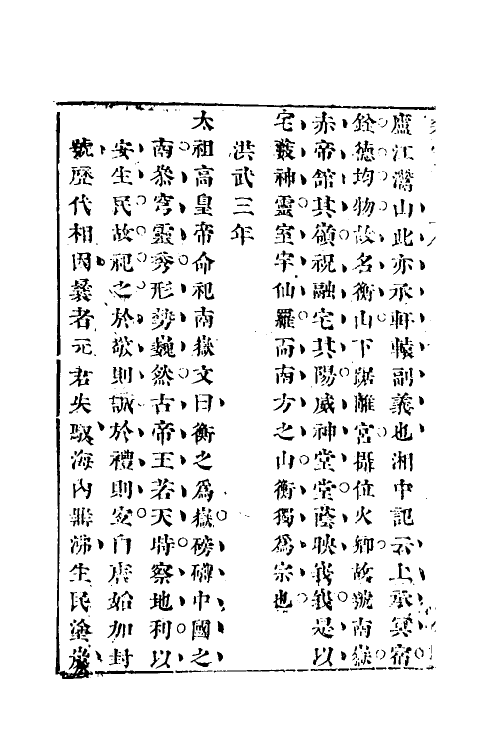 廬江灊山此亦承軒轅副義也湘中記云上承冥宿
銓德均物故名衡山下踞離宮攝位火鄉故號南嶽
赤帝館其嶺祝融宅其陽威神堂堂蔭映峩峩是以
宅藪神靈室宇仙羅而南方之山衡獨爲宗也
洪武三年
太祖高皇帝命祀南嶽文曰衡之爲嶽磅礴中國之
南叅穹靈秀形勢巍然古帝王若天時察地利以
安生民故祀之於敬則誠於禮則安自唐始加封
號歷代相因曩者元君失馭海內鼎沸生民塗